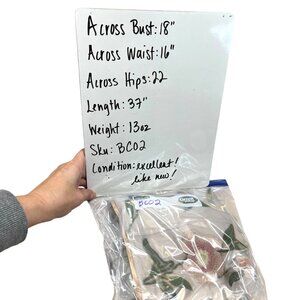 Across Bust: 18"
Across Waist: 16"
Across Hips: 22
Length: 37"
Weight: 13oz
Sku: BC02
Condition: excellent!
like new!
BC02